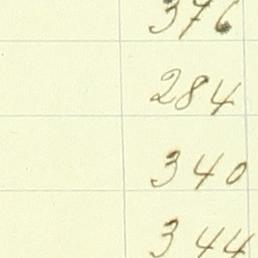 376
284
340
344